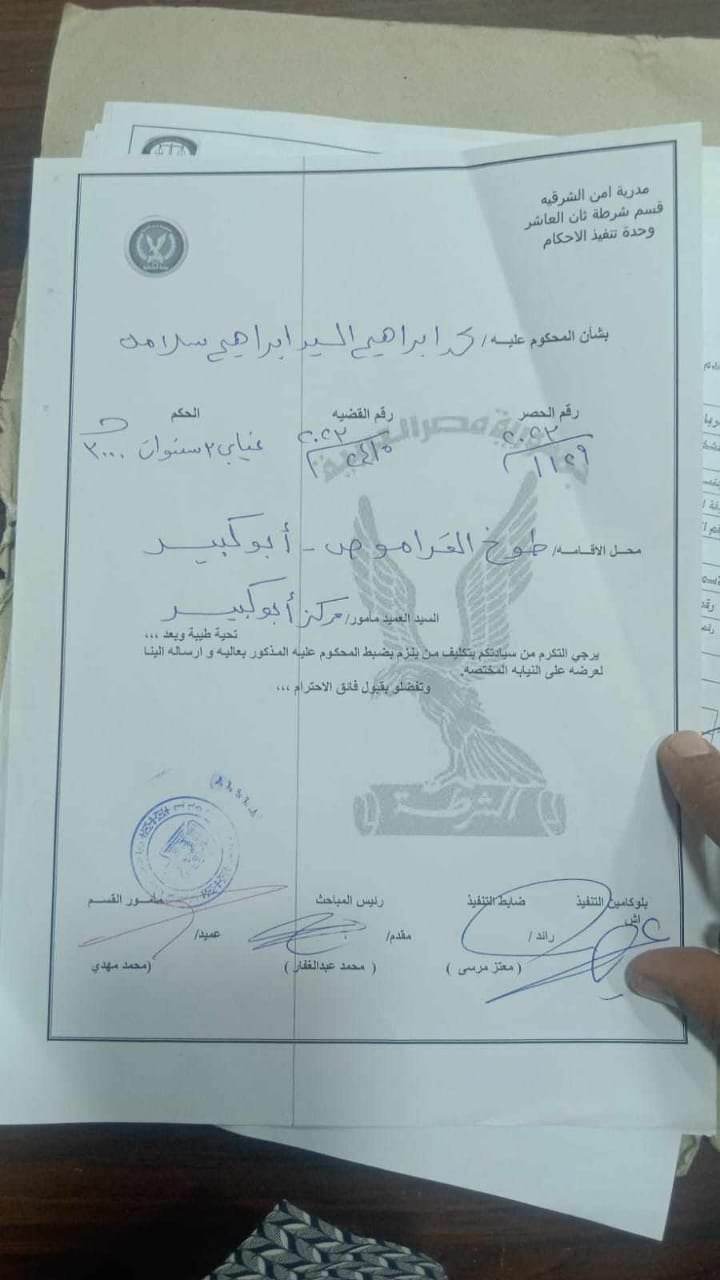 مدرية امن الشرقيه
قسم شرطة ثان العاشر
وحدة تنفيذ الاحكام
بشأن المحكوم عليه / محمد ابراهيم السيد ابراهيم سلامه
رقم الحصر رقم القضيه الحكم
١١٢٩ / ٢٠٢٣ ٢٠٢٣ غيابي ٣ سنوات ٣٠٠٠ ج
جمهورية مصر العربية
محل الاقامه / طوخ القراموص - أبوكبير
السيد العميد مأمور / مركز أبوكبير
تحية طيبة وبعد ،،،
يرجي التكرم من سيادتكم بتكليف من يلزم بضبط المحكوم عليه المذكور بعاليه و ارساله الينا
لعرضه على النيابه المختصه.
وتفضلو بقبول فائق الاحترام ،،،
الشرطة
بلوكامين التنفيذ ضابط التنفيذ رئيس المباحث مأمور القسم
رائد / مقدم/ عميد/
( معتز مرسى ) ( محمد عبدالغفار ) (محمد مهدي